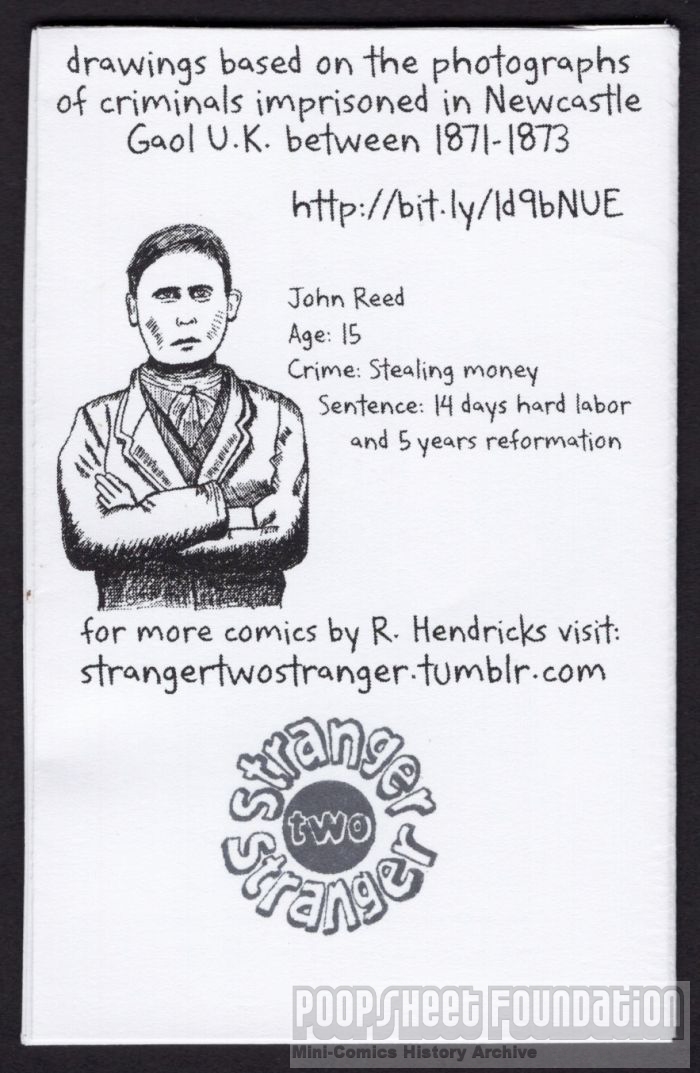 drawings based on the photographs
of criminals imprisoned in Newcastle
Gaol U.K. between 1871-1873
http://bit.ly/1d9bNUE
John Reed
Age: 15
Crime: Stealing money
Sentence: 14 days hard labor
and 5 years reformation
for more comics by R. Hendricks visit:
strangertwostranger.tumblr.com
Stranger
two
Stranger
POOPSHEET FOUNDATION
Mini-Comics History Archive